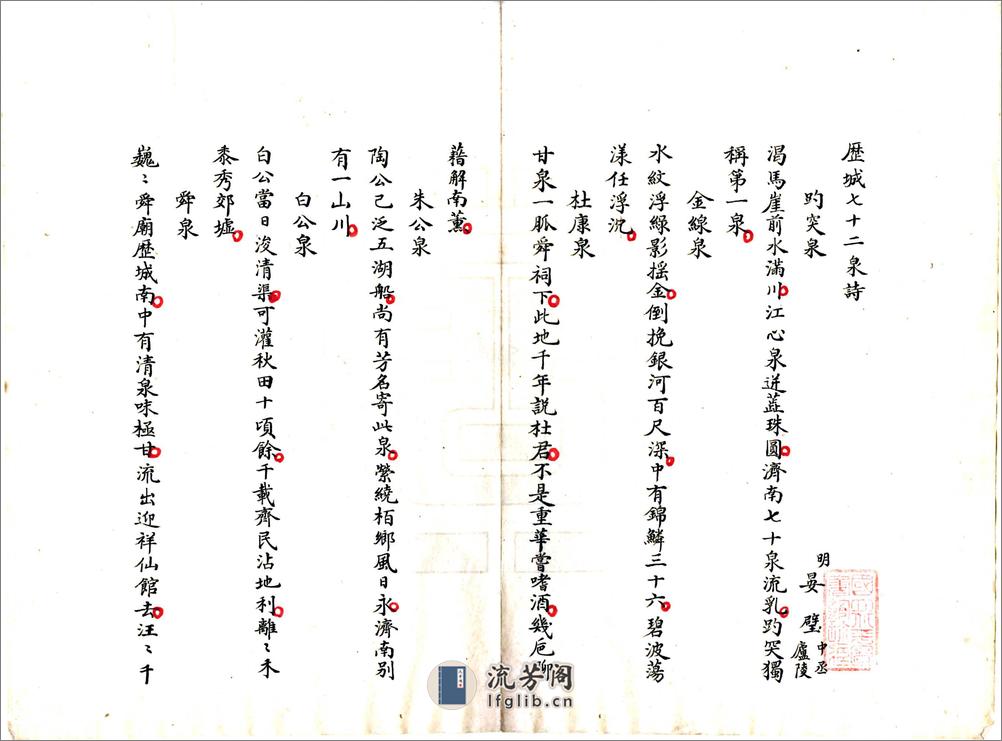 歷城七十二泉詩
明晏璧 中丞 廬陵
趵突泉
渴馬崖前水滿川江心泉迸蕋珠圓濟南七十泉流乳趵突獨
稱第一泉
金線泉
水紋浮綠影摇金倒挽銀河百尺深中有錦鱗三十六碧波蕩
漾任浮沉
杜康泉
甘泉一脈舜祠下此地千年說杜君不是重華嘗嗜酒幾巵聊
藉解南薰
朱公泉
陶公已泛五湖船尚有芳名寄此泉縈繞栢鄉風日永濟南别
有一山川
白公泉
白公當日浚清渠可灌秋田十頃餘千載齊民沾地利離〻禾
黍秀郊墟
舜泉
巍〻舜廟歷城南中有清泉味極甘流出迎祥仙館去汪〻千
流芳阁
lfglib.cn